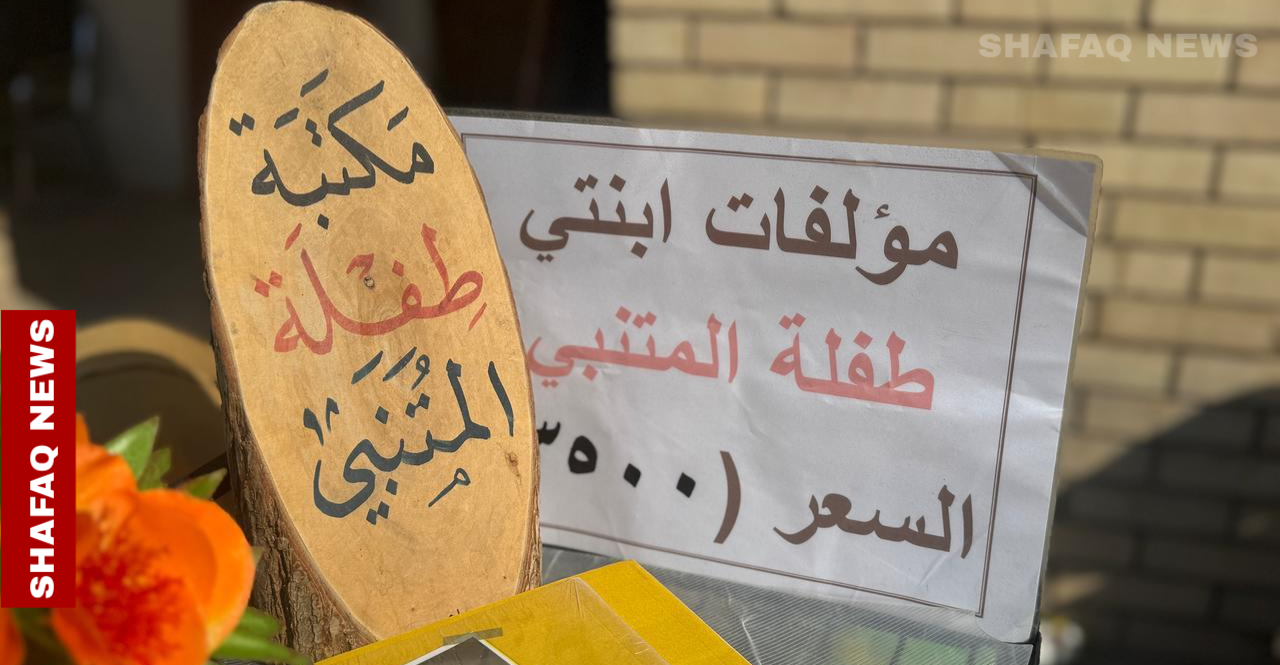 SHAFAQ NEWS
مَكتَبَة
طِفلَة
المُتَنَبيّ
مؤلفات ابنتي
طفلة المتنبي
السعر (٣٥٠٠
SHAFAQ NEWS